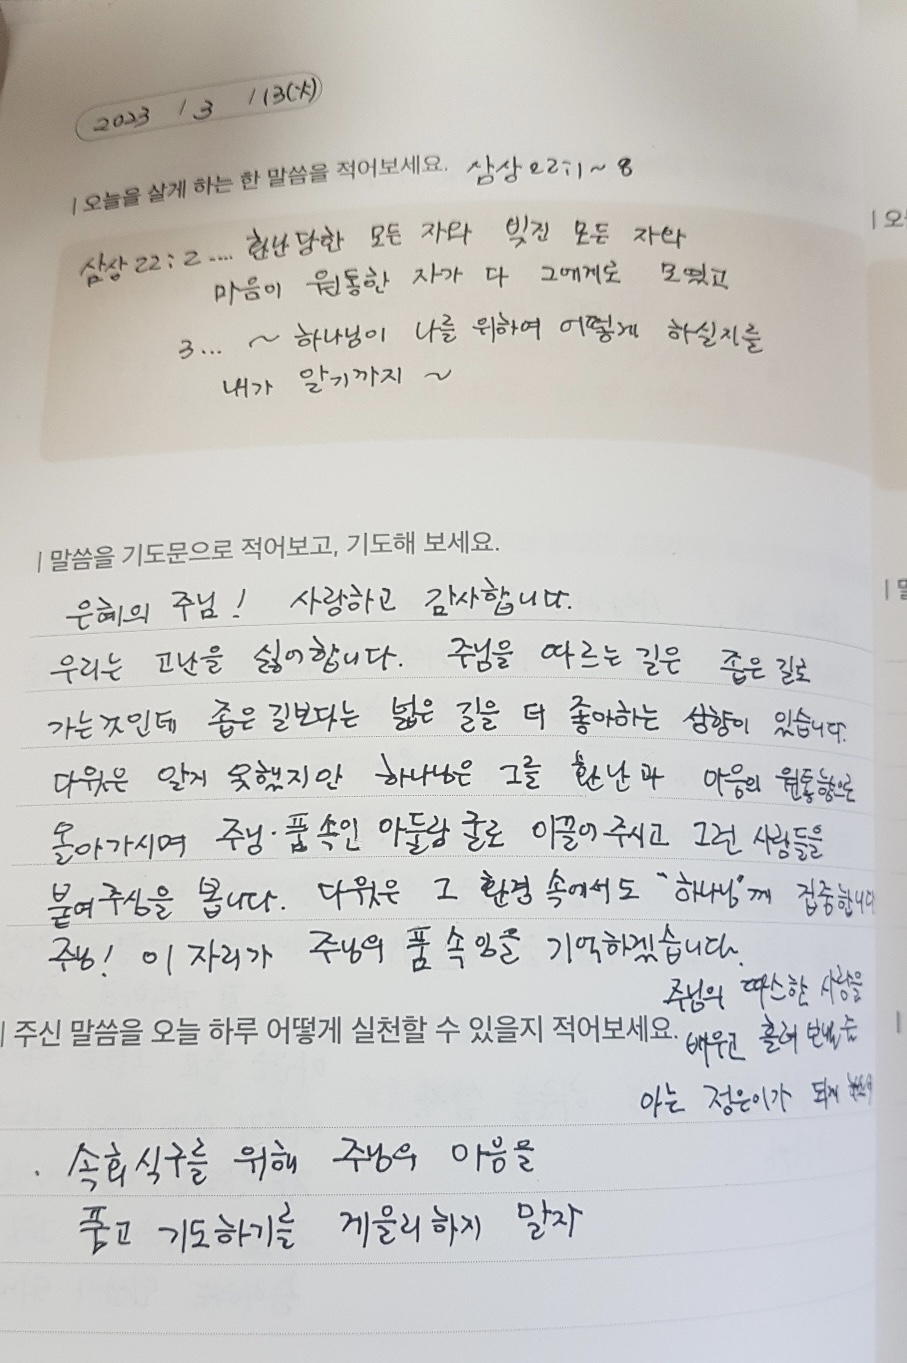 2023 / 3 / 13(水)
| 오늘을 살게 하는 한 말씀을 적어보세요. 삼상 22:1~8
삼상 22:2 .... 환난 당한 모든 자와 빚진 모든 자와
마음이 원통한 자가 다 그에게로 모였고
3... ~ 하나님이 나를 위하여 어떻게 하실지를
내가 알기까지 ~
| 말씀을 기도문으로 적어보고, 기도해 보세요.
은혜의 주님! 사랑하고 감사합니다.
우리는 고난을 싫어합니다. 주님을 따르는 길은 좁은 길로
가는것인데 좁은 길보다는 넓은 길을 더 좋아하는 성향이 있습니다.
다윗은 알지 못했지만 하나님은 그를 환난과 마음의 원통함으로
몰아가시며 주님·품 속인 아둘람 굴로 이끌어 주시고 그런 사람들을
붙여주심을 봅니다. 다윗은 그 환경 속에서도 "하나님"께 집중합니다
주님! 이 자리가 주님의 품 속임을 기억하겠습니다.
주님의 따스한 사랑을
배우고 흘려 보낼 줄
아는 정은이가 되게
| 주신 말씀을 오늘 하루 어떻게 실천할 수 있을지 적어보세요.
· 속회식구를 위해 주님의 마음을
품고 기도하기를 게을리하지 말자